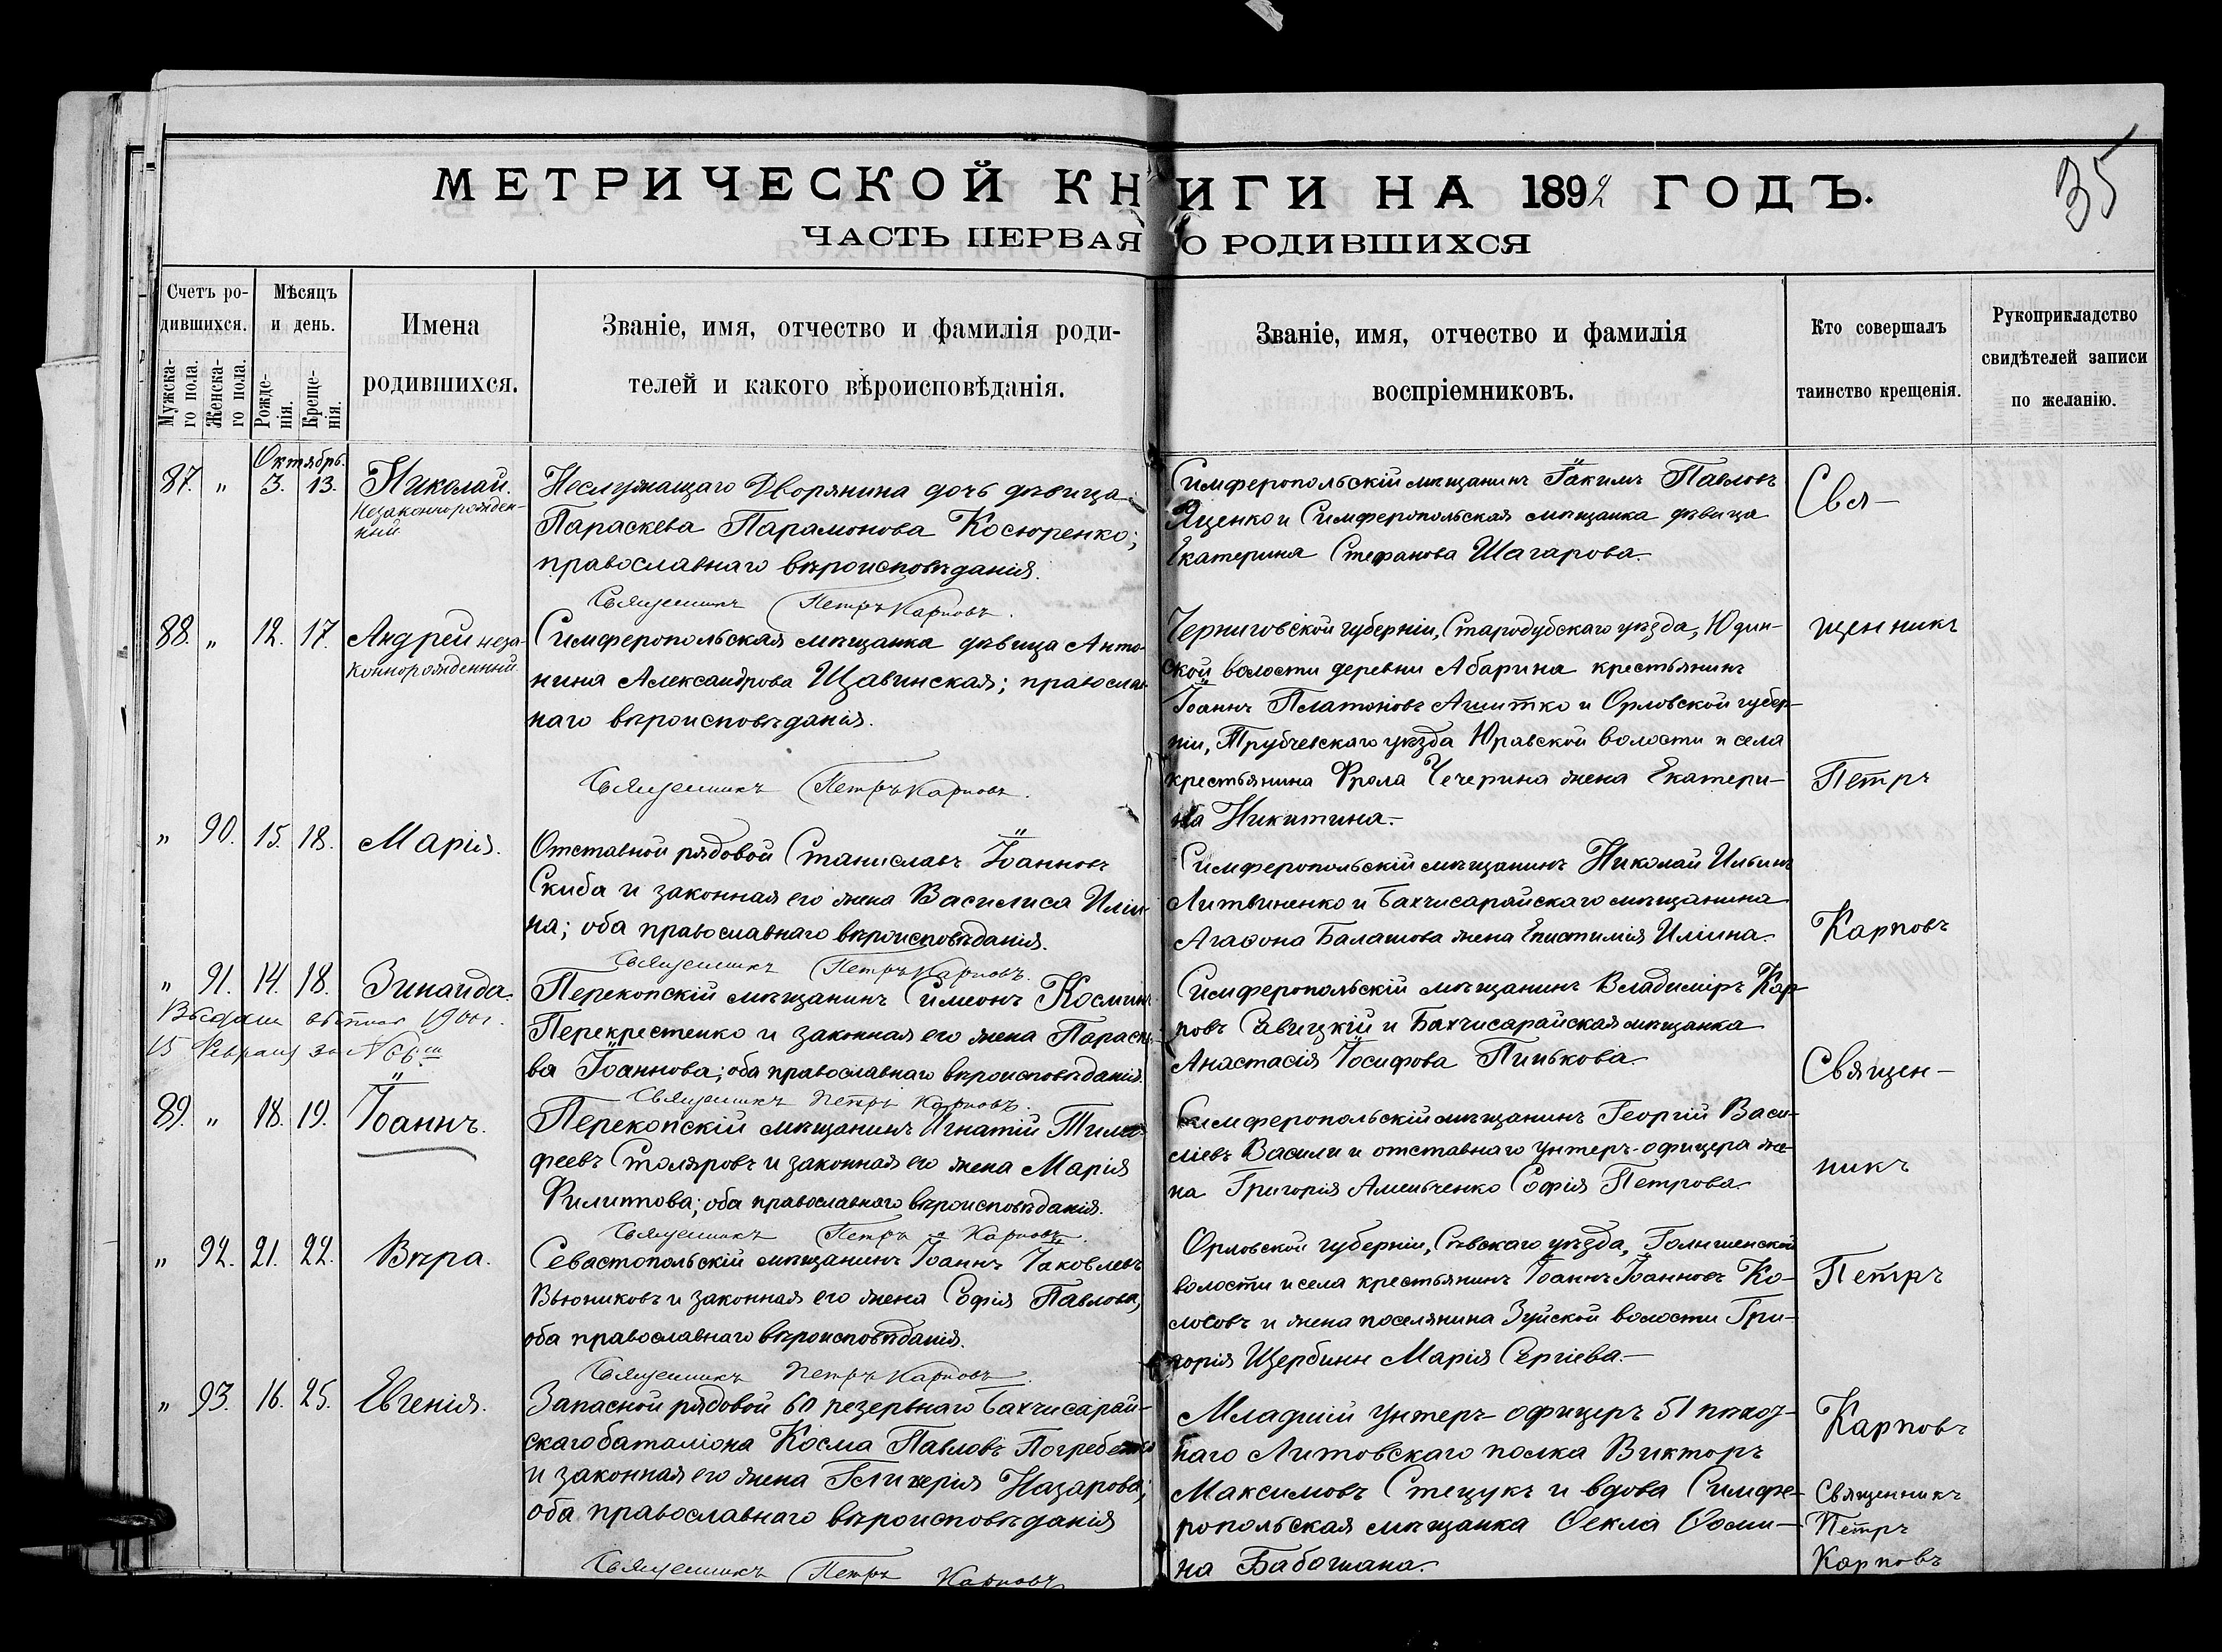 МЕТРИЧЕСКОЙ КНИГИ НА 1892 ГОДЪ.
35
ЧАСТЬ ПЕРВАЯ О РОДИВШИХСЯ
Счетъ ро-
дившихся.
Мужска-
го пола.
Женска-
го пола.
Мѣсяцъ
и день.
Рожде-
нія.
Креще-
нія.
Имена
родившихся.
Званіе, имя, отчество и фамилія роди-
телей и какого вѣроисповѣданія.
Званіе, имя, отчество и фамилія
воспріемниковъ.
Кто совершалъ
таинство крещенія.
Рукоприкладство
свидѣтелей записи
по желанію.
Октябрь.
87. " 3. 13. Николай.
Незаконнорожден-
ный
Неслужащаго Дворянина дочь дѣвица
Параскева Парамонова Косюренко;
православнаго вѣроисповѣданія.
Священникъ Петръ Карповъ.
Симферопольскій мѣщанинъ Іакимъ Павловъ
Яценко и Симферопольская мѣщанка дѣвица
Екатерина Стефанова Шагарова.
Свя-
88. " 12. 17. Андрей неза-
коннорожденный
Симферопольская мѣщанка дѣвица Анто-
нина Александрова Щавинская; православ-
наго вѣроисповѣданія.
Священникъ Петръ Карповъ.
Черниговской губерніи, Стародубскаго уѣзда, Юдин-
ской волости деревни Абарина крестьянинъ
Іоаннъ Платоновъ и Орловской губер-
ніи, Трубчевскаго уѣзда Юравской волости и села
крестьянина Фрола Чечерина жена Екатери-
на Никитина.
щенникъ
Петръ
" 90. 15. 18. Марія.
Отставной рядовой Станиславъ Іоанновъ
Скиба и законная его жена Василиса Иліи-
на; оба православнаго вѣроисповѣданія.
Священникъ Петръ Карповъ.
Симферопольскій мѣщанинъ Николай Ильинъ
Литвиненко и Бахчисарайскаго мѣщанина
Агаѳона Балашова жена Епистимія Иліина.
Карповъ
" 91. 14. 18. Зинаида.
15 Февраля за № 66
Перекопскій мѣщанинъ Симеонъ Космин
Перекрестенко и законная его жена Параске-
ва Іоаннова; оба православнаго вѣроисповѣданія.
Священникъ Петръ Карповъ.
Симферопольскій мѣщанинъ Владиміръ Кар-
повъ Савицкій и Бахчисарайская мѣщанка
Анастасія Іосифова Пинькова.
Священ-
89. " 18. 19. Іоаннъ.
Перекопскій мѣщанинъ Игнатій Тимо-
феевъ Столяровъ и законная его жена Марія
Филиппова; оба православнаго вѣроисповѣданія.
Священникъ Петръ Карповъ.
Симферопольскій мѣщанинъ Георгій Васи-
ліевъ Васили и отставнаго унтеръ-офицера же-
на Григорія Амельченко Софія Петрова.
никъ
" 92. 21. 22. Вѣра.
Севастопольскій мѣщанинъ Іоаннъ Іаковлевъ
Вьюниковъ и законная его жена Софія Павлова,
оба православнаго вѣроисповѣданія.
Священникъ Петръ Карповъ.
Орловской губерніи, Сѣвскаго уѣзда,
волости и села крестьянинъ Іоаннъ Іоанновъ Ко-
лосовъ и жена поселянина Зуйской волости Гри-
горія Щербины Марія Сергіева.
Петръ
" 93. 16. 25. Евгенія.
Запасной рядовой 60 резервнаго Бахчисарай-
скаго баталіона Косма Павловъ
и законная его жена Гликерія Назарова;
оба православнаго вѣроисповѣданія
Священникъ Петръ Карповъ
Младшій унтеръ-офицеръ 51 пѣхот-
наго Литовскаго полка Викторъ
Максимовъ Стецукъ и вдова Симфе-
ропольская мѣщанка Ѳекла Ѳоми-
на Бабошана.
Карповъ
Священникъ
Петръ
Карповъ